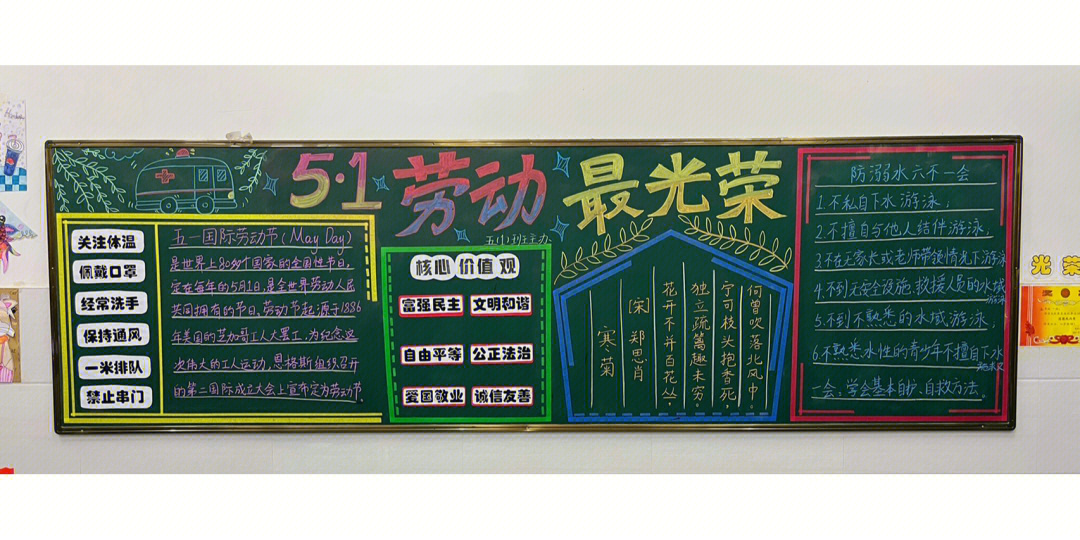 5·1 劳动 最光荣
五(1)班主办
关注体温
佩戴口罩
经常洗手
保持通风
一米排队
禁止串门
五一国际劳动节(May Day)
是世界上80多个国家的全国性节日,
定在每年的5月1日,是全世界劳动人民
共同拥有的节日,劳动节起源于1886
年美国的芝加哥工人大罢工,为纪念这
次伟大的工人运动,恩格斯组织召开
的第二国际成立大会上宣布定为劳动节.
核心价值观
富强民主 文明和谐
自由平等 公正法治
爱国敬业 诚信友善
寒菊
[宋] 郑思肖
花开不并百花丛,
独立疏篱趣未穷,
宁可枝头抱香死,
何曾吹落北风中.
防溺水六不一会
1.不私自下水游泳;
2.不擅自与他人结伴游泳,
3.不在无家长或老师带领情况下游泳
4.不到无安全设施、救援人员的水域
游泳
5.不到不熟悉的水域游泳,
6.不熟悉水性的青少年不擅自下水
一会:学会基本自护、自救方法。
光荣